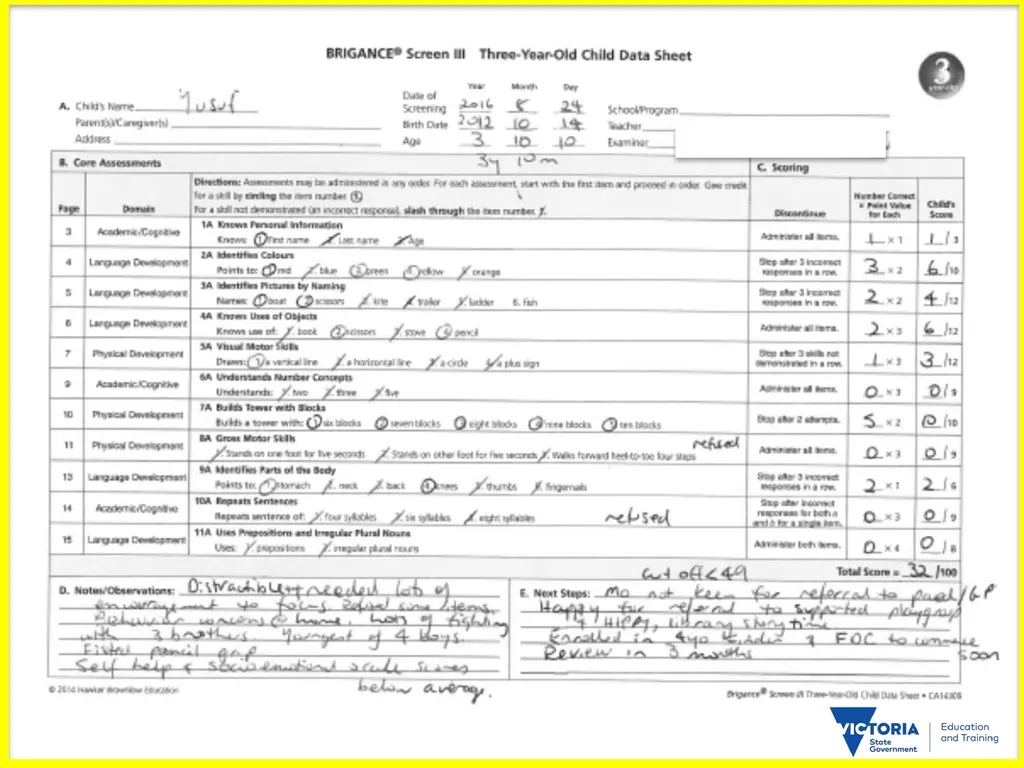 BRIGANCE® Screen III Three-Year-Old Child Data Sheet
3
year-old
A. Child's Name Yusuf
Parent(s)/Caregiver(s)
Address
Year Month Day
Date of Screening 2016 8 24
Birth Date 2012 10 14
Age 3 10 10
3y 10m
School/Program
Teacher
Examiner
B. Core Assessments
C. Scoring
Page Domain
Directions: Assessments may be administered in any order. For each assessment, start with the first item and proceed in order. Give credit
for a skill by circling the item number. 1
For a skill not demonstrated (an incorrect response), slash through the item number. 1
Discontinue
Number Correct × Point Value for Each
Child's Score
3 Academic/Cognitive 1A Knows Personal Information
Knows: 1 First name 2. Last name 3. Age Administer all items. 1 × 1 1/3
4 Language Development 2A Identifies Colours
Points to: 1 red 2. blue 3 green 4 yellow 5. orange Stop after 3 incorrect responses in a row. 3 × 2 6/10
5 Language Development 3A Identifies Pictures by Naming
Names: 1 boat 2 scissors 3. kite 4. trailer 5. ladder 6. fish Stop after 3 incorrect responses in a row. 2 × 2 4/12
6 Language Development 4A Knows Uses of Objects
Knows use of: 1. book 2 scissors 3. stove 4 pencil Administer all items. 2 × 3 6/12
7 Physical Development 5A Visual Motor Skills
Draws: 1 a vertical line 2. a horizontal line 3. a circle 4. a plus sign Stop after 3 skills not demonstrated in a row. 1 × 3 3/12
9 Academic/Cognitive 6A Understands Number Concepts
Understands: 1. two 2. three 3. five Administer all items. 0 × 3 0/9
10 Physical Development 7A Builds Tower with Blocks
Builds a tower with: 1 six blocks 2 seven blocks 3 eight blocks 4 nine blocks 5 ten blocks Stop after 2 attempts. 5 × 2 10/10
11 Physical Development 8A Gross Motor Skills refused
1. Stands on one foot for five seconds 2. Stands on other foot for five seconds 3. Walks forward heel-to-toe four steps Administer all items. 0 × 3 0/9
13 Language Development 9A Identifies Parts of the Body
Points to: 1 stomach 2. neck 3. back 4 knees 5. thumbs 6. fingernails Stop after 3 incorrect responses in a row. 2 × 1 2/6
14 Academic/Cognitive 10A Repeats Sentences
Repeats sentence of: 1. four syllables 2. six syllables 3. eight syllables refused Stop after incorrect responses for both a and b for a single item. 0 × 3 0/9
15 Language Development 11A Uses Prepositions and Irregular Plural Nouns
Uses: 1. prepositions 2. irregular plural nouns Administer both items. 0 × 4 0/8
cut off <49 Total Score = 32/100
D. Notes/Observations: Distractible + needed lots of
encouragement to focus. Refused some items.
Behaviour concerns @ home. Lots of fighting
with 3 brothers. Youngest of 4 boys.
Fisted pencil grip
Self help & socio emotional scale scores
below average.
E. Next Steps: Mo not keen for referral to paed/GP
Happy for referral to supported playgroup
& HIPPY, library story time
Enrolled in 4yo kinder & FDC to commence
soon
Review in 3 months
© 2014 Hawker Brownlow Education
Brigance® Screen III Three-Year-Old Child Data Sheet • CA14309
VICTORIA
State
Government
Education
and Training